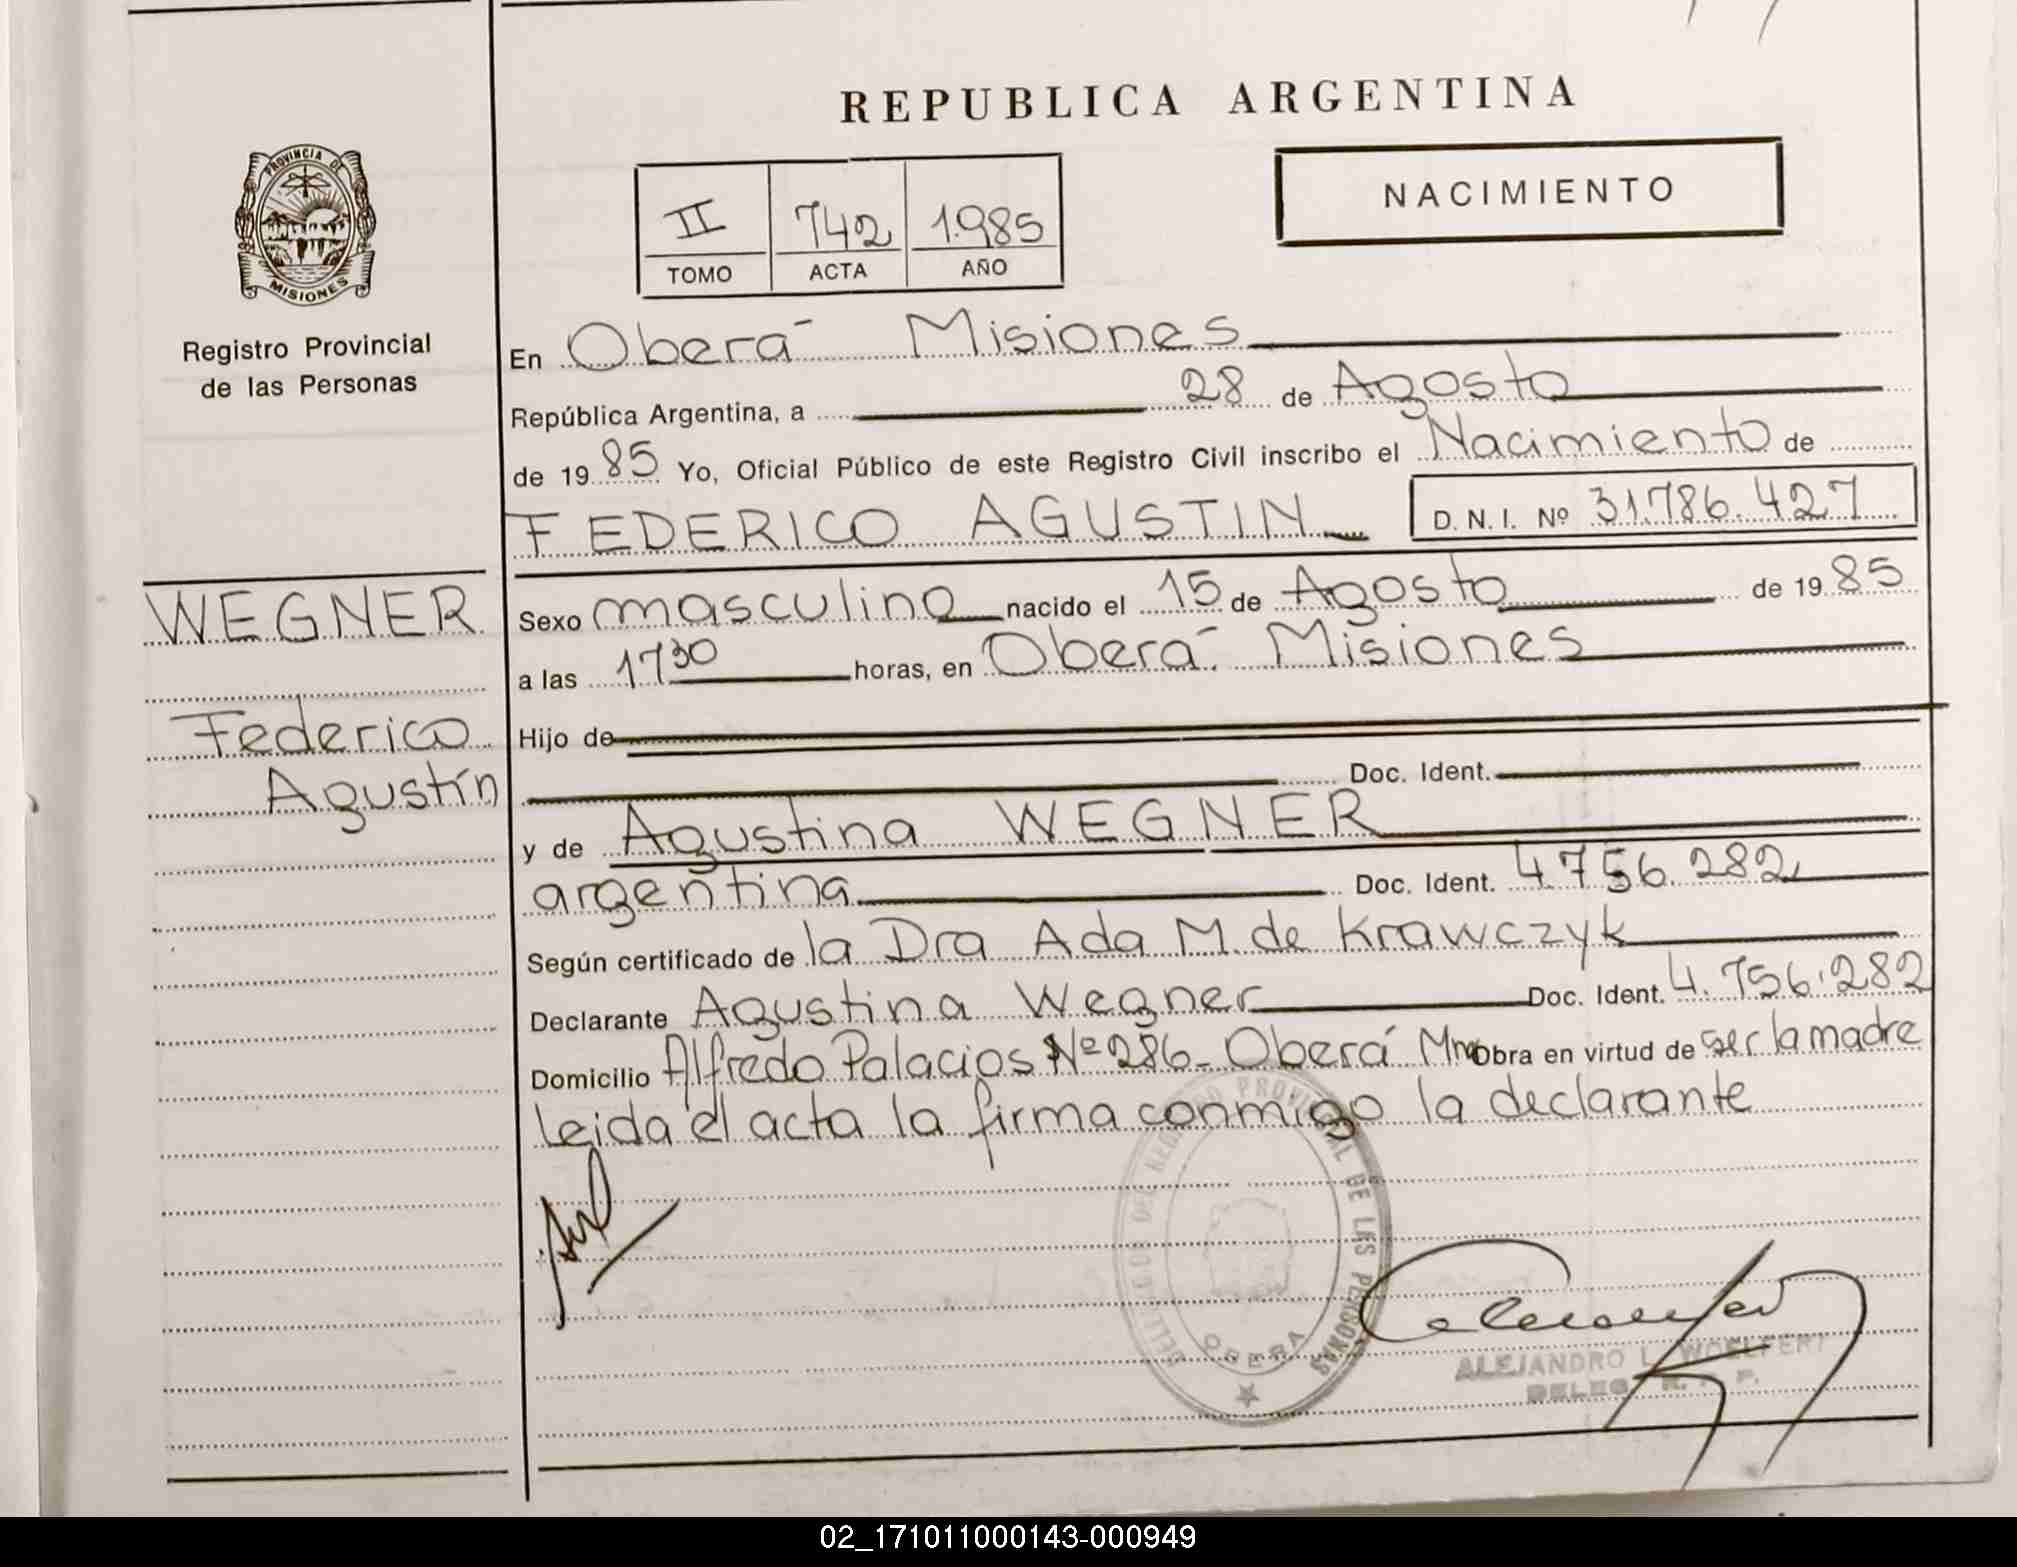 REPUBLICA ARGENTINA
PROVINCIA DE
MISIONES
Registro Provincial
de las Personas
II 742 1.985
TOMO ACTA AÑO
NACIMIENTO
En Oberá Misiones
República Argentina, a 28 de Agosto
de 19 85 Yo, Oficial Público de este Registro Civil inscribo el Nacimiento de
FEDERICO AGUSTIN D. N. I. Nº 31.786.427
WEGNER
Federico
Agustín
Sexo masculino nacido el 15 de Agosto de 19 85
a las 17 30 horas, en Oberá Misiones
Hijo de
Doc. Ident.
y de Agustina WEGNER
argentina Doc. Ident. 4.756.282
Según certificado de la Dra Ada M. de Krawczyk
Declarante Agustina Wegner Doc. Ident. 4.756.282
Domicilio Alfredo Palacios Nº 286 - Oberá Mnes Obra en virtud de ser la madre
leida el acta la firma conmigo la declarante
DEL REGISTRO PROVINCIAL DE LAS PERSONAS
OBERA
ALEJANDRO L. WOELFERT
DELEG. R. P. P.
02_171011000143-000949